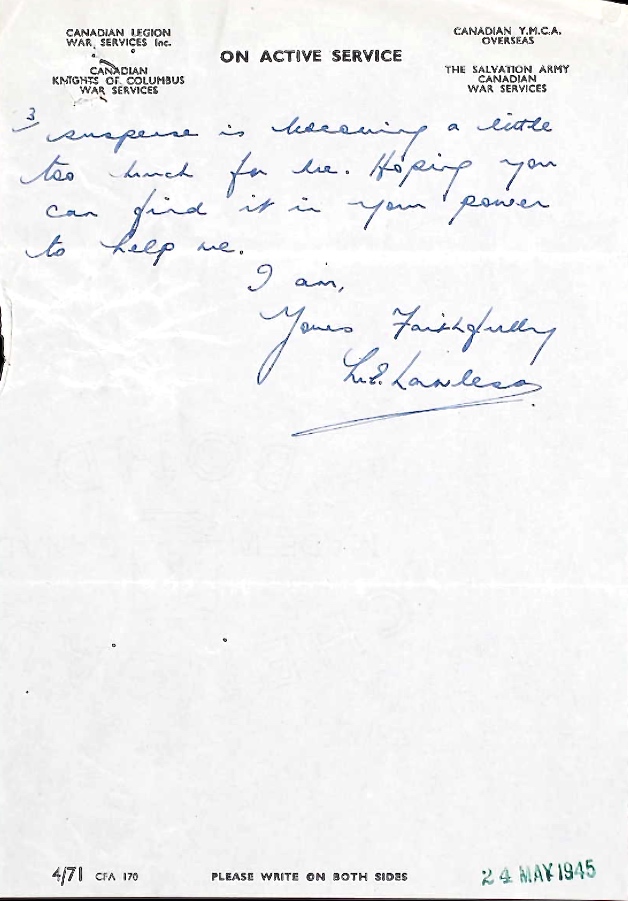 CANADIAN LEGION
WAR SERVICES Inc.
CANADIAN
KNIGHTS OF COLUMBUS
WAR SERVICES
ON ACTIVE SERVICE
CANADIAN Y.M.C.A.
OVERSEAS
THE SALVATION ARMY
CANADIAN
WAR SERVICES
3
suspense is becoming a little
too much for me. Hoping you
can find it in your power
to help me.
I am,
Yours Faithfully
L.E. Lawless
4/71 CFA 170
PLEASE WRITE ON BOTH SIDES
24 MAY 1945